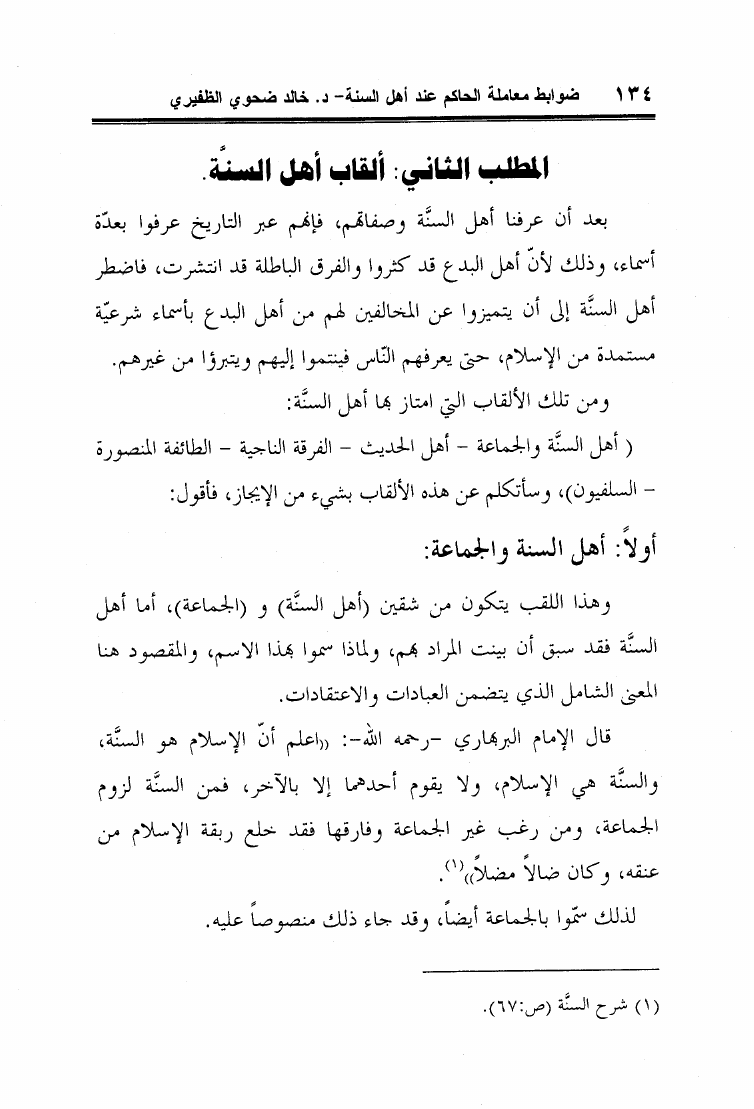 ١٣٤ ضوابط معاملة الحاكم عند أهل السنة- د. خالد ضحوي الظفيري
المطلب الثاني: ألقاب أهل السنَّة.
بعد أن عرفنا أهل السنَّة وصفاتهم، فإنهم عبر التاريخ عرفوا بعدّة
أسماء، وذلك لأنّ أهل البدع قد كثروا والفرق الباطلة قد انتشرت، فاضطر
أهل السنَّة إلى أن يتميزوا عن المخالفين لهم من أهل البدع بأسماء شرعيّة
مستمدة من الإسلام، حتى يعرفهم النّاس فينتموا إليهم ويتبرؤا من غيرهم.
ومن تلك الألقاب التي امتاز بها أهل السنَّة:
( أهل السنَّة والجماعة – أهل الحديث – الفرقة الناجية – الطائفة المنصورة
– السلفيون)، وسأتكلم عن هذه الألقاب بشيء من الإيجاز، فأقول:
أولاً: أهل السنة والجماعة:
وهذا اللقب يتكون من شقين (أهل السنَّة) و (الجماعة)، أما أهل
السنَّة فقد سبق أن بينت المراد بهم، ولماذا سموا بهذا الاسم، والمقصود هنا
المعنى الشامل الذي يتضمن العبادات والاعتقادات.
قال الإمام البربهاري -رحمه الله-: ((اعلم أنّ الإسلام هو السنَّة،
والسنَّة هي الإسلام، ولا يقوم أحدهما إلا بالآخر، فمن السنَّة لزوم
الجماعة، ومن رغب غير الجماعة وفارقها فقد خلع ربقة الإسلام من
عنقه، وكان ضالاً مضلاً))(١).
لذلك سمّوا بالجماعة أيضاً، وقد جاء ذلك منصوصاً عليه.
(١) شرح السنَّة (ص:٦٧).